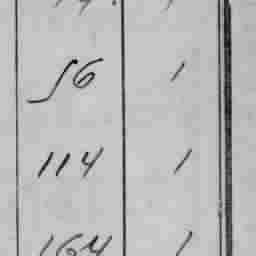 56 1
114 1
164 1